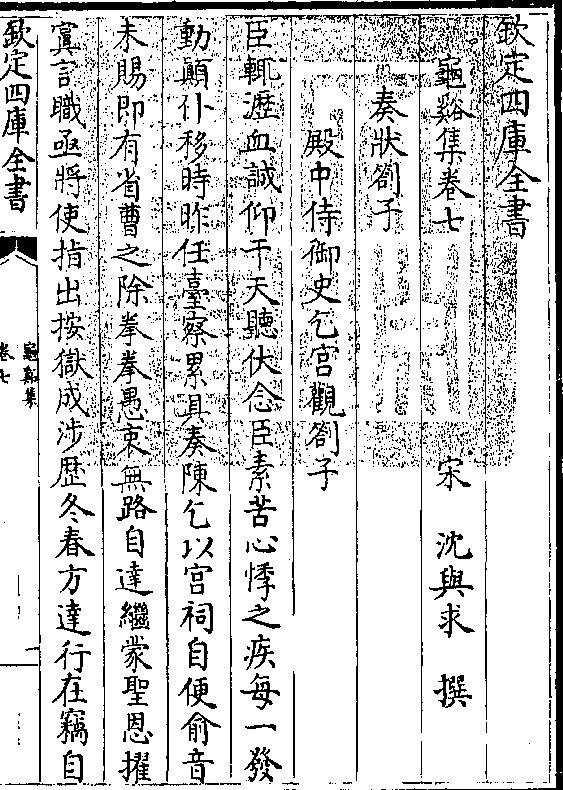 欽定四庫全書
龜谿集卷七
宋 沈與求 撰
奏狀劄子
殿中侍御史乞宮觀劄子
臣輒瀝血誠仰干天聽伏念臣素苦心悸之疾每一發
動顛仆移時昨任臺察累具奏陳乞以宮祠自便俞音
未賜即有省曹之除拳拳愚衷無路自達繼蒙聖恩擢
寘言職亟將使指出按獄成涉歷冬春方達行在竊自
欽定四庫全書
龜谿集
卷七